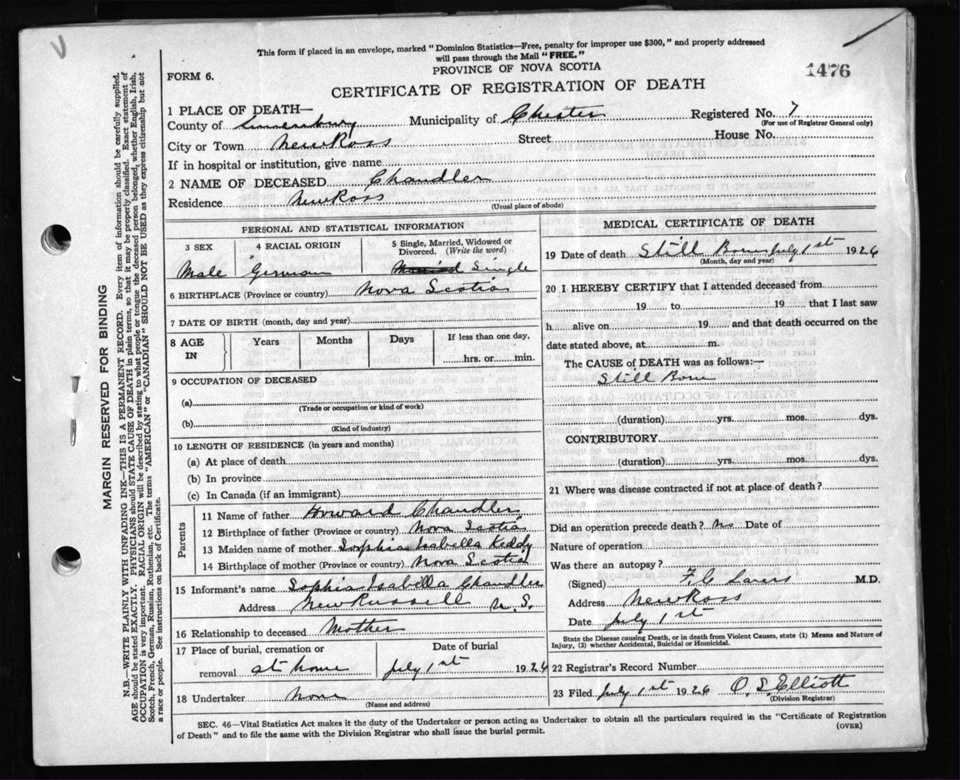 This form if placed in an envelope, marked "Dominion Statistics—Free, penalty for improper use $300," and properly addressed
will pass through the Mail "FREE."
PROVINCE OF NOVA SCOTIA
1476
FORM 6.
CERTIFICATE OF REGISTRATION OF DEATH
1 PLACE OF DEATH—
County of Lunenburg Municipality of Chester Registered No. 7
(For use of Registrar General only)
City or Town New Ross Street House No.
If in hospital or institution, give name
2 NAME OF DECEASED Chandler
Residence New Ross
(Usual place of abode)
PERSONAL AND STATISTICAL INFORMATION
3 SEX 4 RACIAL ORIGIN 5 Single, Married, Widowed or
Divorced. (Write the word)
Male German Single
6 BIRTHPLACE (Province or country) Nova Scotia
7 DATE OF BIRTH (month, day and year)
8 AGE IN Years Months Days If less than one day,
hrs. or min.
9 OCCUPATION OF DECEASED
(a)
(Trade or occupation or kind of work)
(b)
(Kind of industry)
10 LENGTH OF RESIDENCE (in years and months)
(a) At place of death
(b) In province
(c) In Canada (if an immigrant)
Parents
11 Name of father Howard Chandler
12 Birthplace of father (Province or country) Nova Scotia
13 Maiden name of mother Sophia Isabella Keddy
14 Birthplace of mother (Province or country) Nova Scotia
15 Informant's name Sophia Isabella Chandler
Address New Russell N.S.
16 Relationship to deceased Mother
17 Place of burial, cremation or Date of burial
removal at home July 1st 1926
18 Undertaker none
(Name and address)
MEDICAL CERTIFICATE OF DEATH
19 Date of death Still Born July 1st 1926
(Month, day and year)
20 I HEREBY CERTIFY that I attended deceased from
19 to 19 that I last saw
h alive on 19 and that death occurred on the
date stated above, at m.
The CAUSE of DEATH was as follows:—
Still Born
(duration) yrs. mos. dys.
CONTRIBUTORY
(duration) yrs. mos. dys.
21 Where was disease contracted if not at place of death?
Did an operation precede death? No Date of
Nature of operation
Was there an autopsy?
(Signed) F. C. M.D.
Address New Ross
Date July 1st
State the Disease causing Death, or in death from Violent Causes, state (1) Means and Nature of
Injury, (2) whether Accidental, Suicidal or Homicidal.
22 Registrar's Record Number
23 Filed July 1st 1926 O. S. Elliott
(Division Registrar)
SEC. 46—Vital Statistics Act makes it the duty of the Undertaker or person acting as Undertaker to obtain all the particulars required in the "Certificate of Registration
of Death" and to file the same with the Division Registrar who shall issue the burial permit.
(OVER)
MARGIN RESERVED FOR BINDING
N.B.—WRITE PLAINLY WITH UNFADING INK—THIS IS A PERMANENT RECORD. Every item of information should be carefully supplied.
AGE should be stated EXACTLY. PHYSICIANS should STATE CAUSE OF DEATH in plain terms, so that it may be properly classified. Exact statement of
OCCUPATION is very important. RACIAL ORIGIN will be described by stating to what people or tongue the deceased person belonged, whether English, Irish,
Scotch, French, German, Russian, Ruthenian, etc. The terms "AMERICAN" or "CANADIAN" SHOULD NOT BE USED as they express citizenship but not
a race or people. See instructions on back of Certificate.